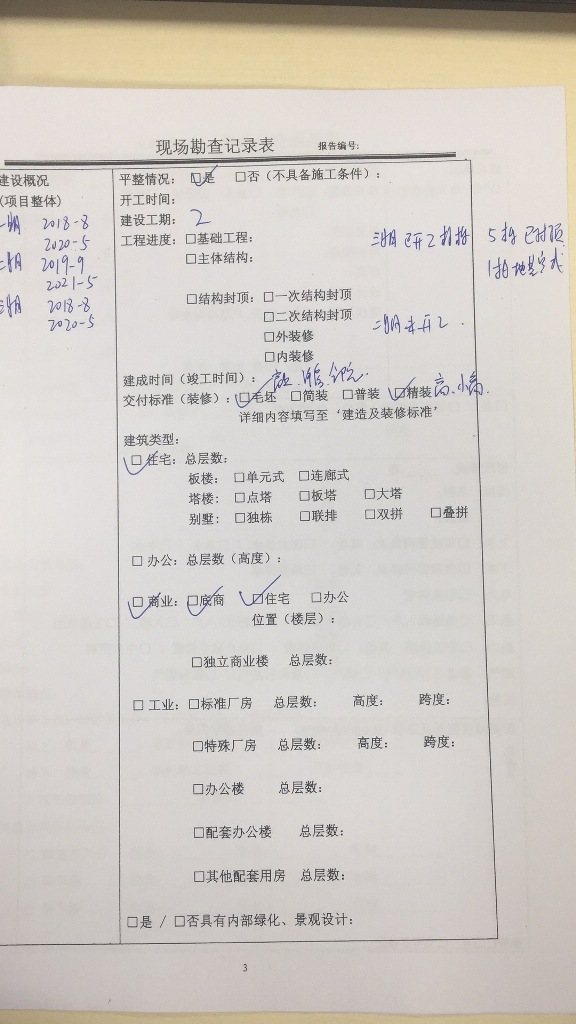 现场勘查记录表 报告编号:
建设概况
(项目整体)
一期 2018-8
2020-5
二期 2019-9
2021-5
三期 2018-8
2020-5
平整情况: □是 □否(不具备施工条件):
开工时间:
建设工期: 2
工程进度: □基础工程:
□主体结构:
三期已开工 5栋已封顶
□结构封顶: □一次结构封顶
□二次结构封顶
二期未开工.
□外装修
□内装修
建成时间(竣工时间):
交付标准(装修): □毛坯 □简装 □普装 □精装 高、小高.
详细内容填写至‘建造及装修标准’
建筑类型:
□住宅: 总层数:
板楼: □单元式 □连廊式
塔楼: □点塔 □板塔 □大塔
别墅: □独栋 □联排 □双拼 □叠拼
□办公: 总层数(高度):
□商业: □底商 □住宅 □办公
位置(楼层):
□独立商业楼 总层数:
□工业: □标准厂房 总层数: 高度: 跨度:
□特殊厂房 总层数: 高度: 跨度:
□办公楼 总层数:
□配套办公楼 总层数:
□其他配套用房 总层数:
□是 / □否具有内部绿化、景观设计:
3